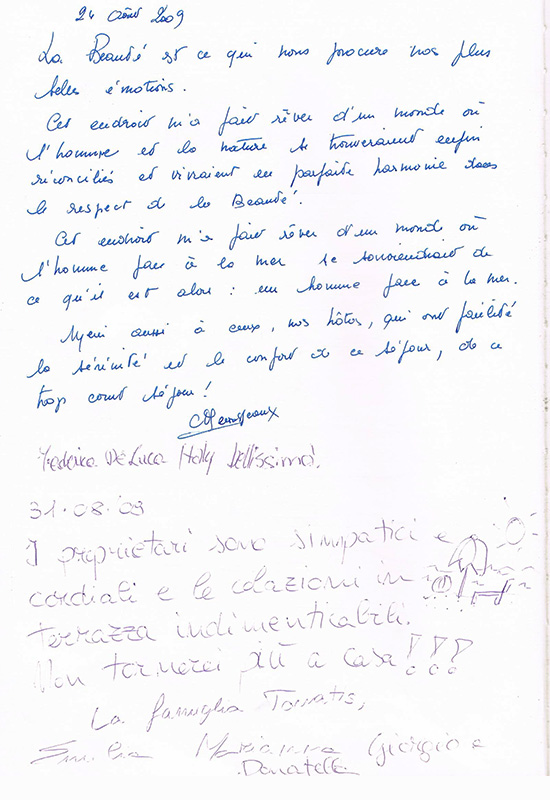 24 Août 2009
La Beauté est ce qui nous procure nos plus
belles émotions.
Cet endroit m'a fait rêver d'un monde où
l'homme et la nature se trouveraient enfin
réconciliés et vivraient en parfaite harmonie dans
le respect de la Beauté.
Cet endroit m'a fait rêver d'un monde où
l'homme face à la mer se souviendrait de
ce qu'il est alors : un homme face à la mer.
Merci aussi à ceux, nos hôtes, qui ont facilité
la sérénité et le confort de ce séjour, de ce
trop court séjour !
Federica De Luca Holly Bellissimo!
31.08.09
I proprietari sono simpatici e
cordiali e le colazioni in
terrazza indimenticabili.
Non tornerei più a casa!!!
La famiglia
Marianna Giorgio e
Donatella